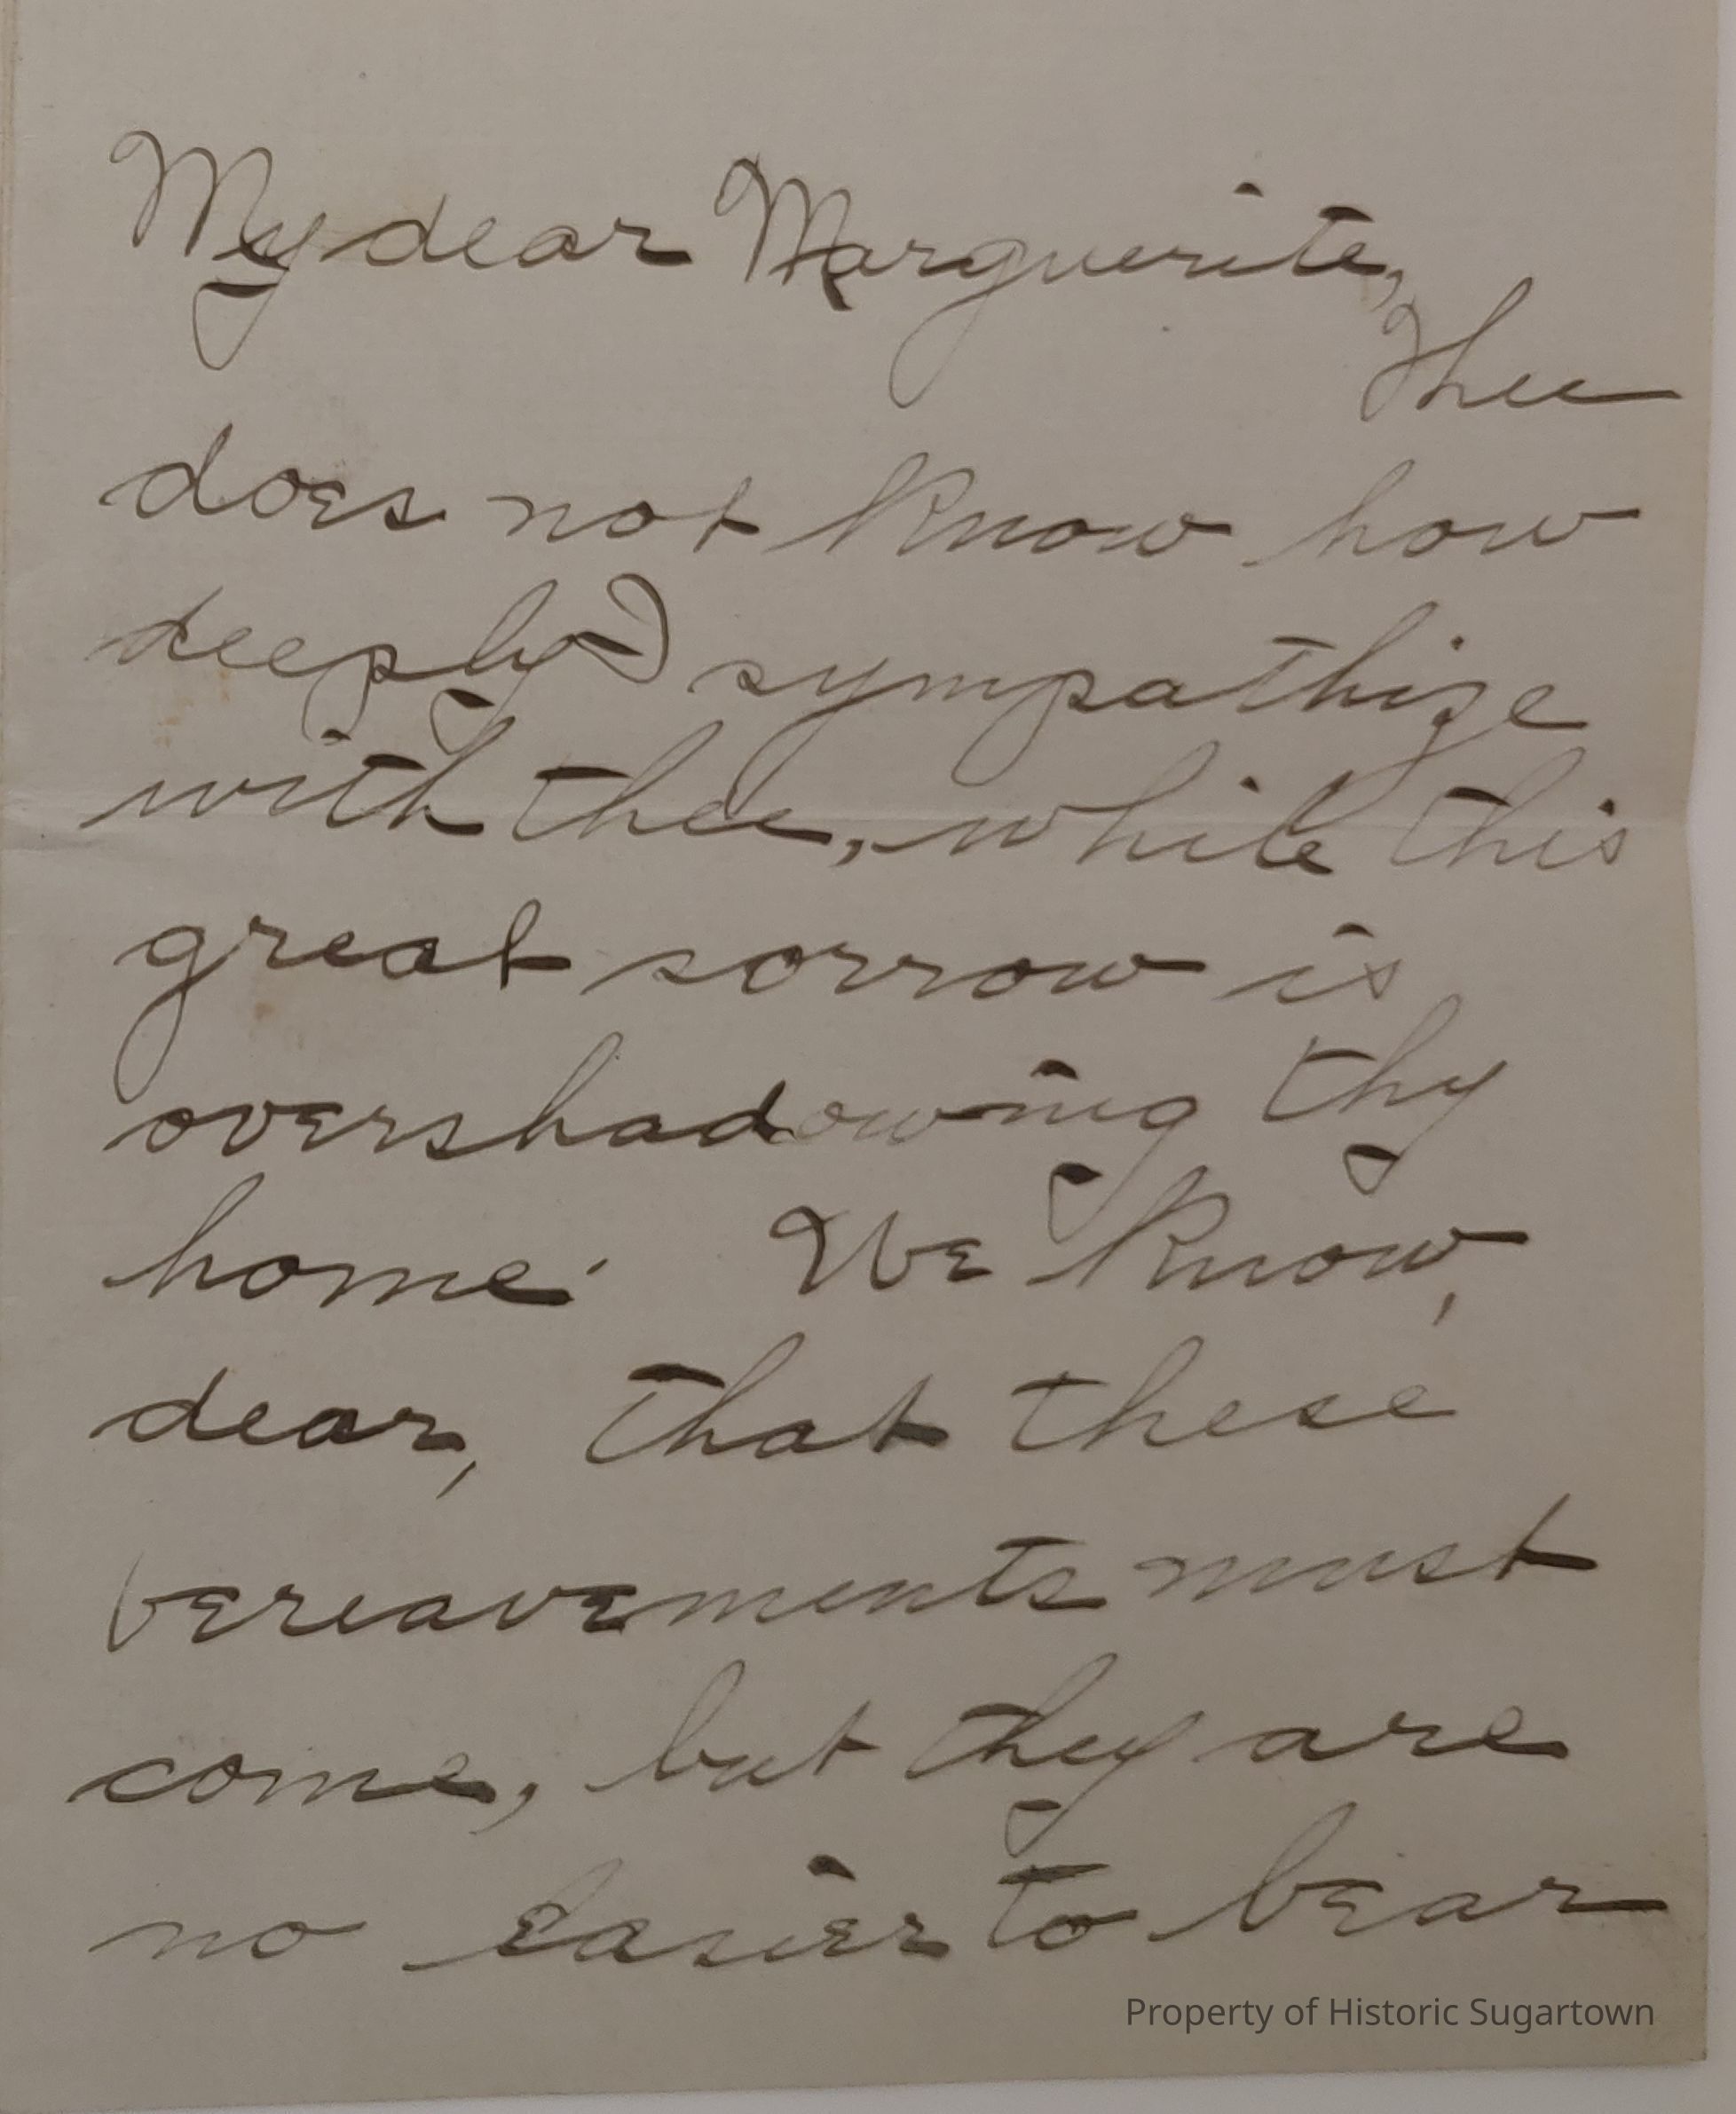 My dear Marguerite,
Thee
does not know how
deeply I sympathize
with thee, while this
great sorrow is
overshadowing thy
home. We know,
dear, that these
bereavements must
come, but they are
no easier to bear
Property of Historic Sugartown